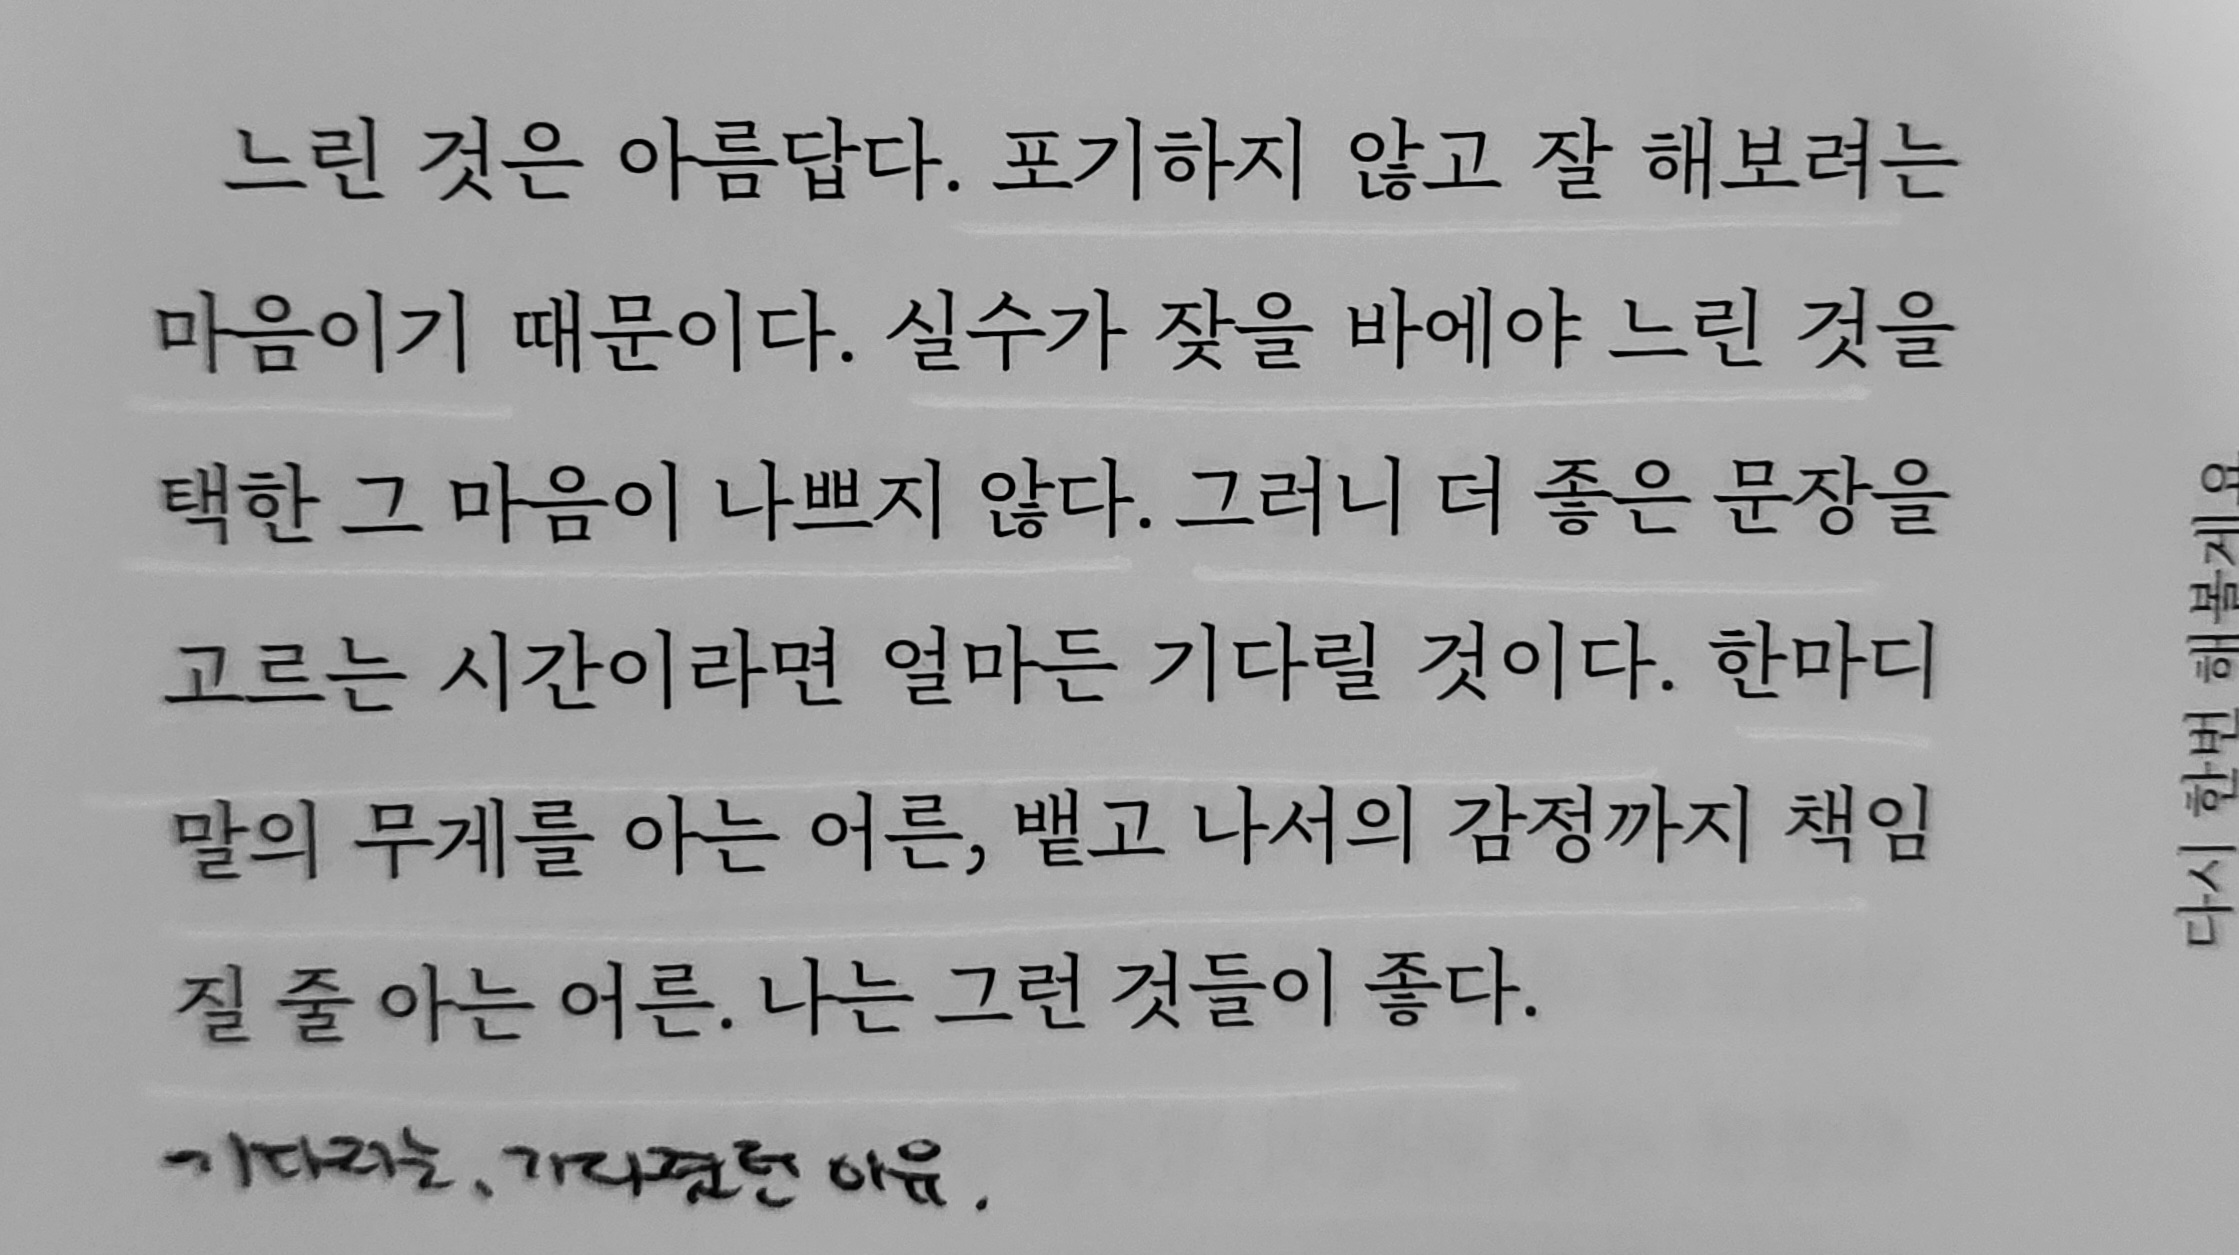 느린 것은 아름답다. 포기하지 않고 잘 해보려는
마음이기 때문이다. 실수가 잦을 바에야 느린 것을
택한 그 마음이 나쁘지 않다. 그러니 더 좋은 문장을
고르는 시간이라면 얼마든 기다릴 것이다. 한마디
말의 무게를 아는 어른, 뱉고 나서의 감정까지 책임
질 줄 아는 어른. 나는 그런 것들이 좋다.
기다리는, 기다렸던 이유.
다시 한번 해볼게요